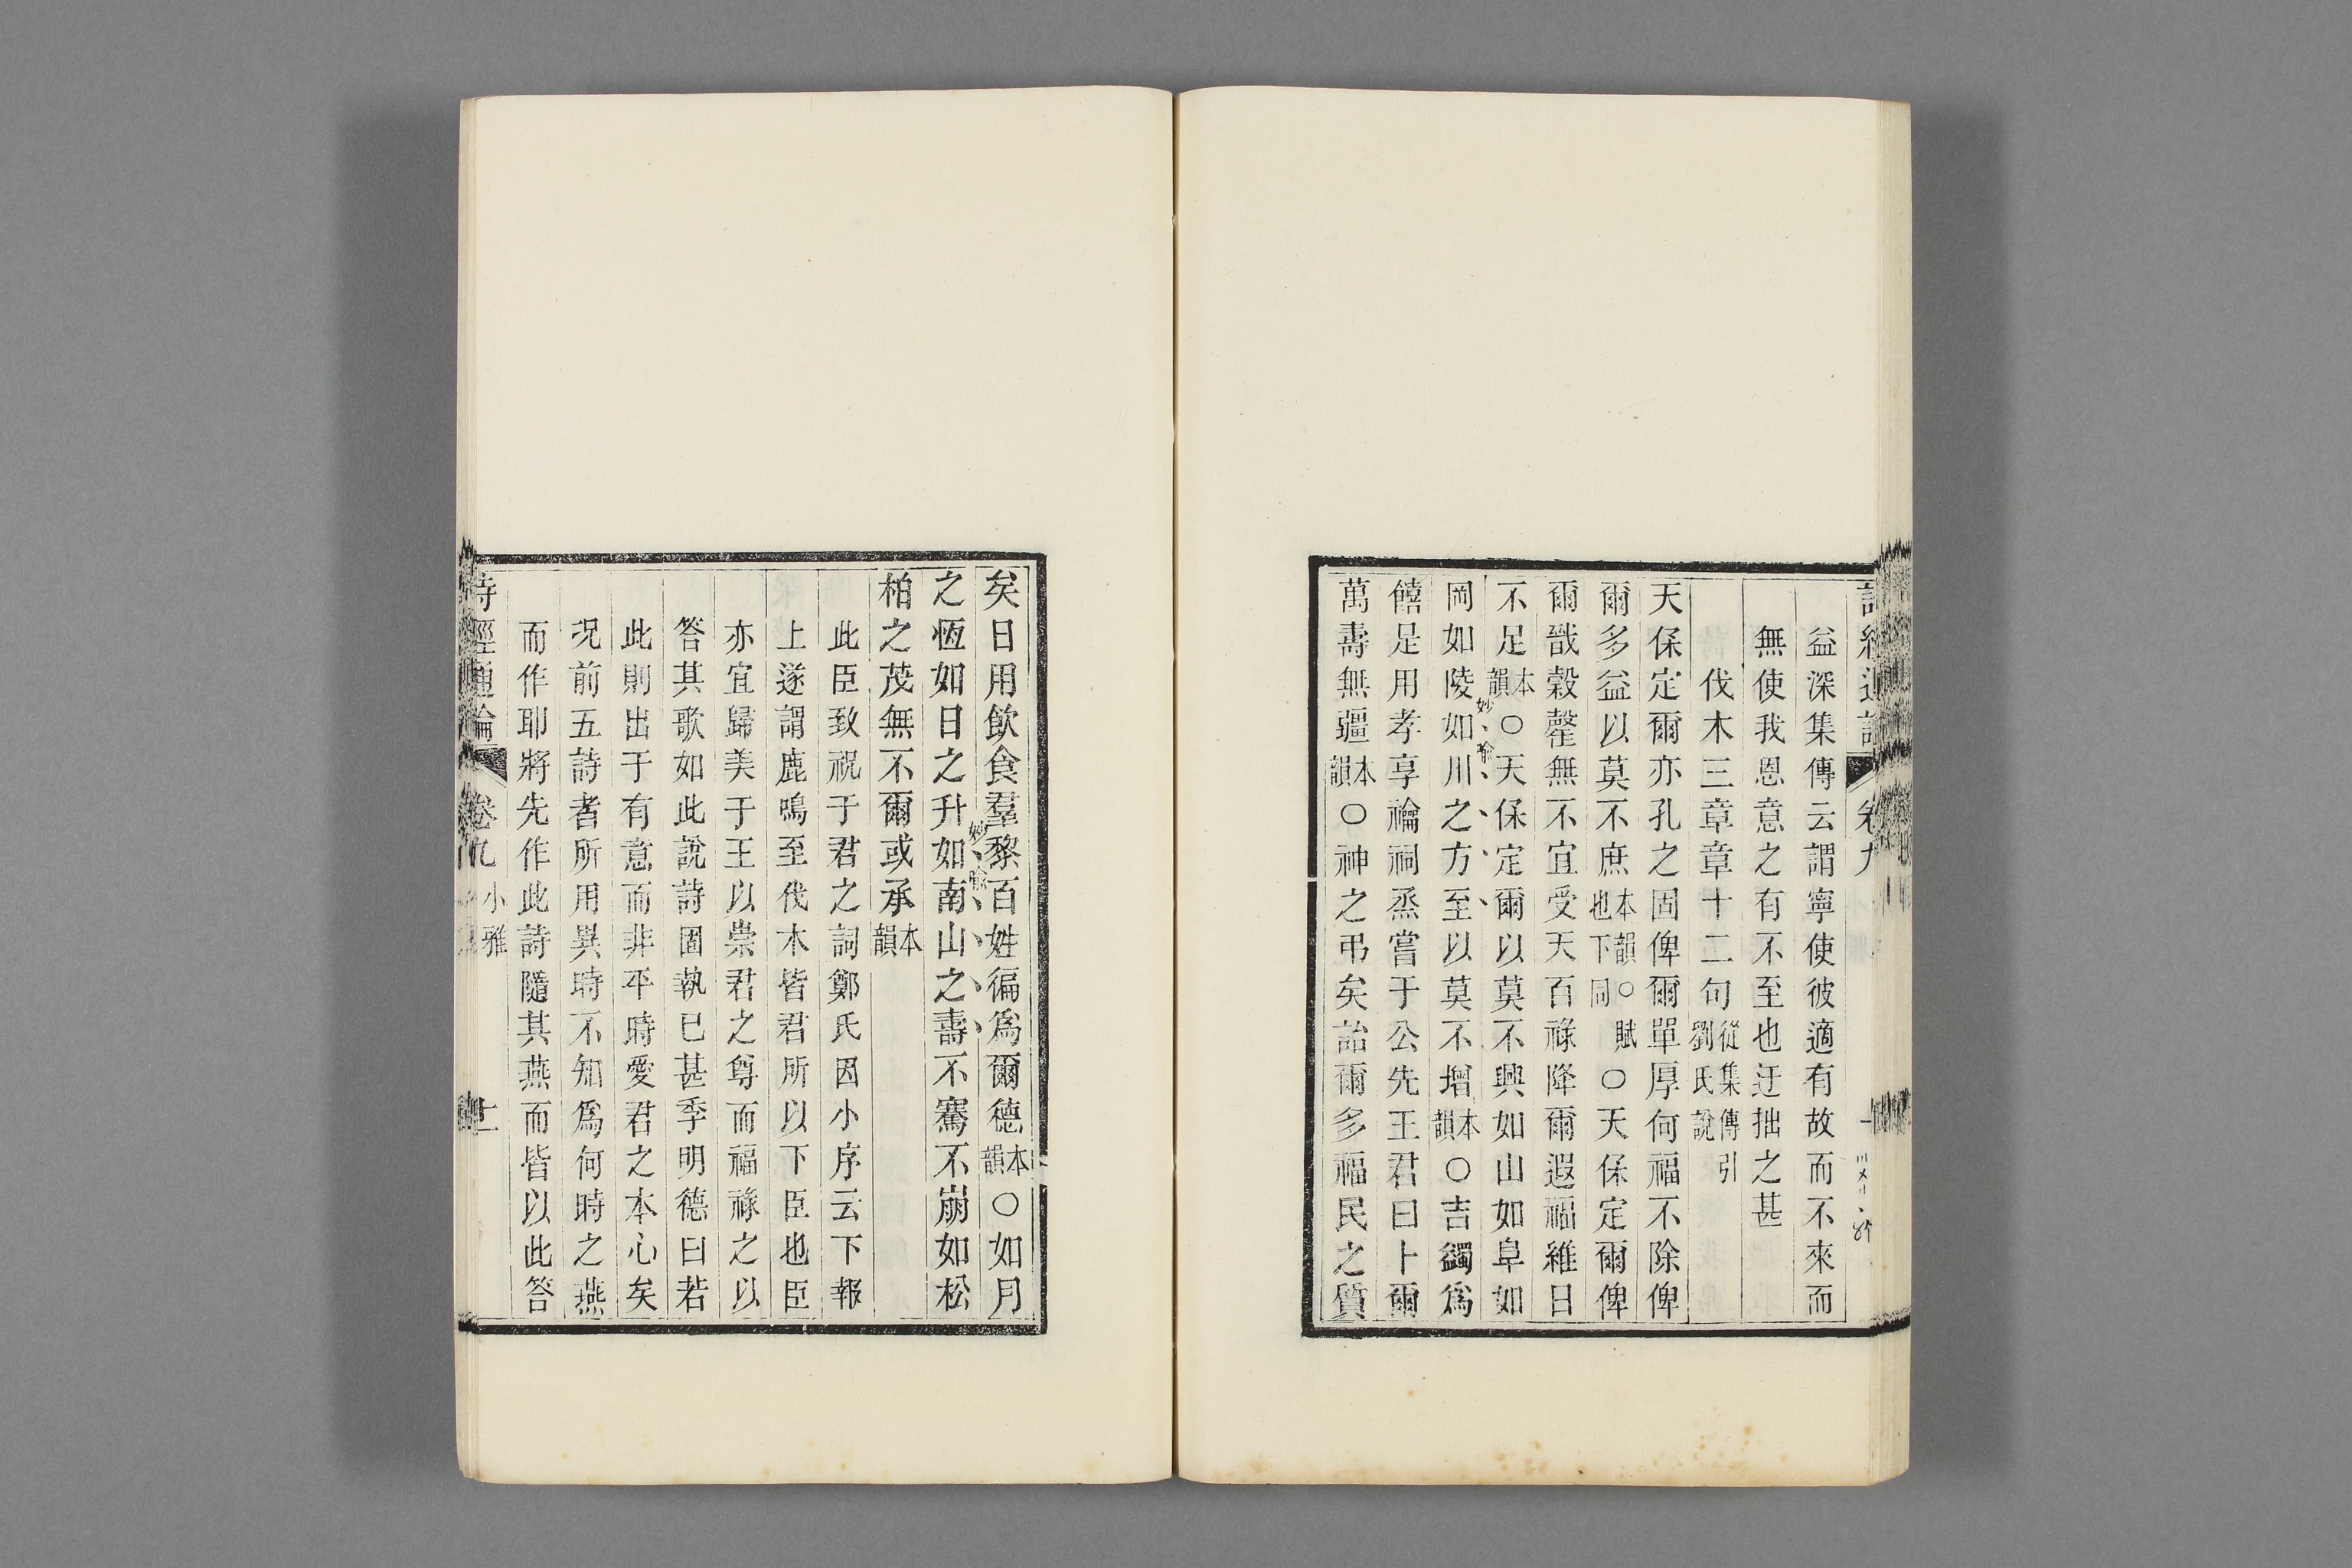 益深集傳云謂寧使彼適有故而不來而
無使我恩意之有不至也迂拙之甚
伐木三章章十二句從集傳引劉氏說
天保定爾亦孔之固俾爾單厚何福不除俾
爾多益以莫不庶本韻○賦也下同○天保定爾俾
爾戩穀罄無不宜受天百祿降爾遐福維日
不足本韻○天保定爾以莫不興如山如阜如
岡如陵如川之方至以莫不增本韻○吉蠲爲
妙喻
饎足用孝享禴祠烝嘗于公先王君曰卜爾
萬壽無疆本韻○神之弔矣詒爾多福民之質
矣日用飲食羣黎百姓徧爲爾德本韻○如月
之恆如日之升如南山之壽不騫不崩如松
妙喻
柏之茂無不爾或承本韻
此臣致祝于君之詞鄭氏因小序云下報
上遂謂鹿鳴至伐木皆君所以下臣也臣
亦宜歸美于王以崇君之尊而福祿之以
答其歌如此說詩固執已甚季明德曰若
此則出于有意而非平時愛君之本心矣
況前五詩者所用異時不知爲何時之燕
而作耶將先作此詩隨其燕而皆以此答
詩經通論 卷九 小雅